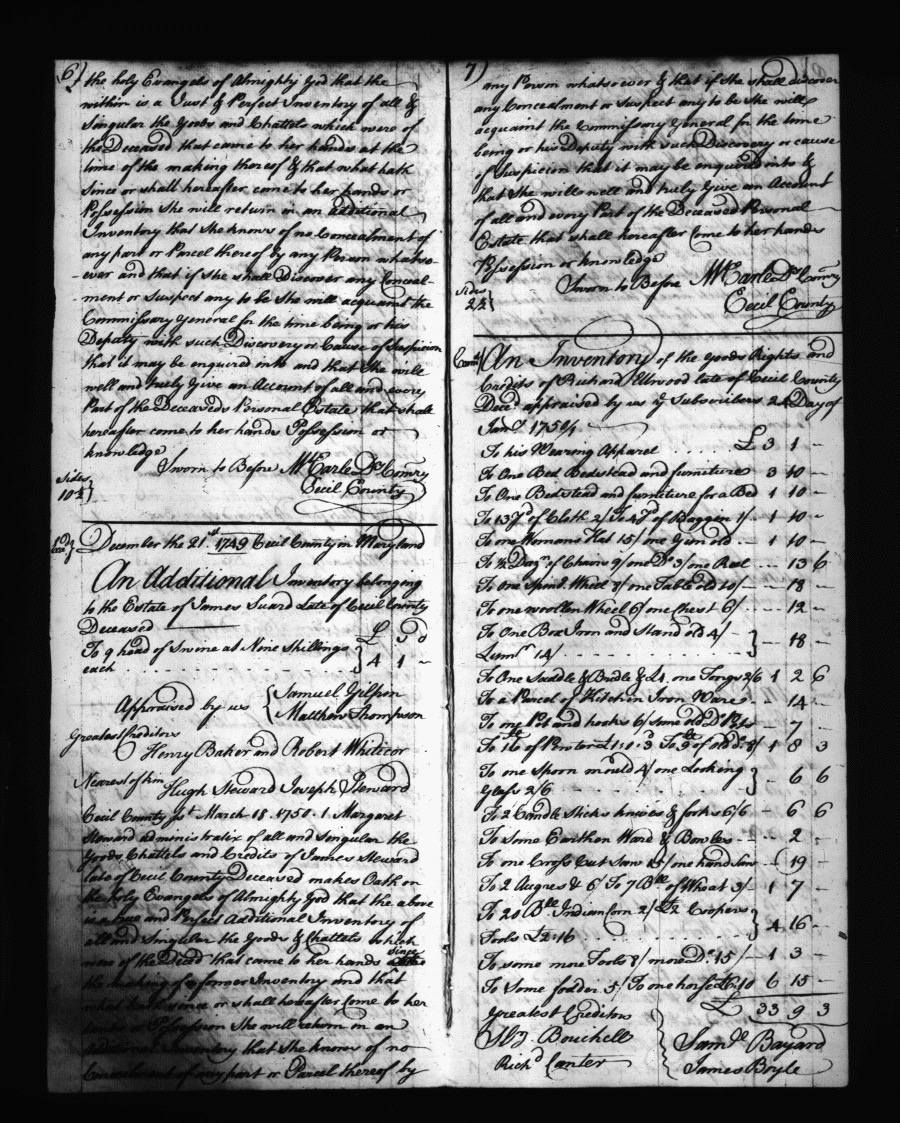 6)
the holy Evangels of Almighty God that the
within is a Just & Perfect Inventory of all &
Singular the Goods and Chattels which were of
the Deceased that came to her hands at the
time of the making thereof & that what hath
Since or shall hereafter come to her hands or
Possession She will return in an additional
Inventory that She knows of no Concealment of
any part or Parcel thereof by any Person whatso-
ever and that if She shall Discover any Conceal-
ment or Suspect any to be She will acquaint the
Commissary General for the time being or his
Deputy with such Discovery or Cause of Suspicion
that it may be enquired into and that She will
well and truly Give an Account of all and every
Part of the Deceaseds Personal Estate that shall
hereafter come to her hands Possession or
knowledge
Sworn to Before Wm Earle Dy Comry
Cecil County
Sides
10½
December the 21st 1749 Cecil County in Maryland
An Additional Inventory belonging
to the Estate of James Suard Late of Cecil County
Deceased £ S D
To 9 head of Swine at Nine Shillings
each } 4 1 -
Appraised by us { Samuel Gilpin
Matthew Thompson
Greatest Creditors
Henry Baker and Robert Whitcor
Nearest of kin Hugh Steward Joseph Steward
Cecil County Sst March 18. 1750.1 Margaret
Steward administratrix of all and Singular the
Goods, Chattels and Credits of James Steward
late of Cecil County Deceased makes Oath on
the holy Evangels of Almighty God that the above
is a true and Perfect Additional Inventory of
all and Singular the Goods & Chattels which
were of the Deced that came to her hands since
the making of a former Inventory and that
what hath since or shall hereafter Come to her
hands Possession She will return in an
additional Inventory that She knows of no
Concealment of any part or Parcel thereof by
7)
any Person whatsoever & that if She shall discover
any Concealment or Suspect any to be She will
acquaint the Commissary General for the time
being or his Deputy with such Discovery or cause
of Suspicion that it may be enquired into &
that She will well and truly Give an Account
of all and every Part of the Deceased Personal
Estate that shall hereafter Come to her hands
Possession or knowledge
Sworn to Before Wm Earle Dy Comry
Cecil County
Sides
2½
An Inventory of the Goods Rights and
Credits of Richard Elwood late of Cecil County
Decd appraised by us ye Subscribers 24 Day of
Jany 1750/1
To his Wearing Apparel £ 3 1 -
To One Bed Bedstead and furniture 3 10 -
To One Bedstead and furniture for a Bed 1 10 -
To 13 Yds of Cloth 2/ To 4 Yds of Baggin 1/ 1 10 -
To one Womans Hat 15/ one Gun old 1 10 -
To ½ Dozn of Chairs 9/ one Do 3/ one Reel - 13 6
To One Spind Wheel 8/ one Table old 10/ - 18 -
To one woollen Wheel 6/ one Chest 6/ - 12 -
To One Box Iron and Stand old 4/
14/ } - 18 -
To One Saddle & Bridle & £1. one Tongs 2/6 1 2 6
To a Parcel of Kitchin Iron Ware - 14 -
To one Pot and hooks 6/ Some old Do 1/ - 7 -
To 16 lb of Pewter £1:0:3 To 9 lb of old Do 8/ 1 8 3
To one Spoon mould 4/ one Looking
Glass 2/6 } - 6 6
To 2 Candle Sticks knives & forks 6/6 - 6 6
To Some Earthen Ward & Bowles - 2 -
To one Cross Cut Saw 15/ one hand Saw - 19 -
To 2 Augres & 6d To 7 Bll of Wheat 3/ 1 7 -
To 20 Blls Indian Corn 2/ £2 Coopers
Tools £2:16 } 4 16 -
To some more Tools 8/ more Do 15/ 1 3 -
To Some fodder 5/ To one horse £6:10 6 15 -
£ 33 9 3
Greatest Creditors
Bouchell
Richd Canter
Samll Bayard
James Boyle